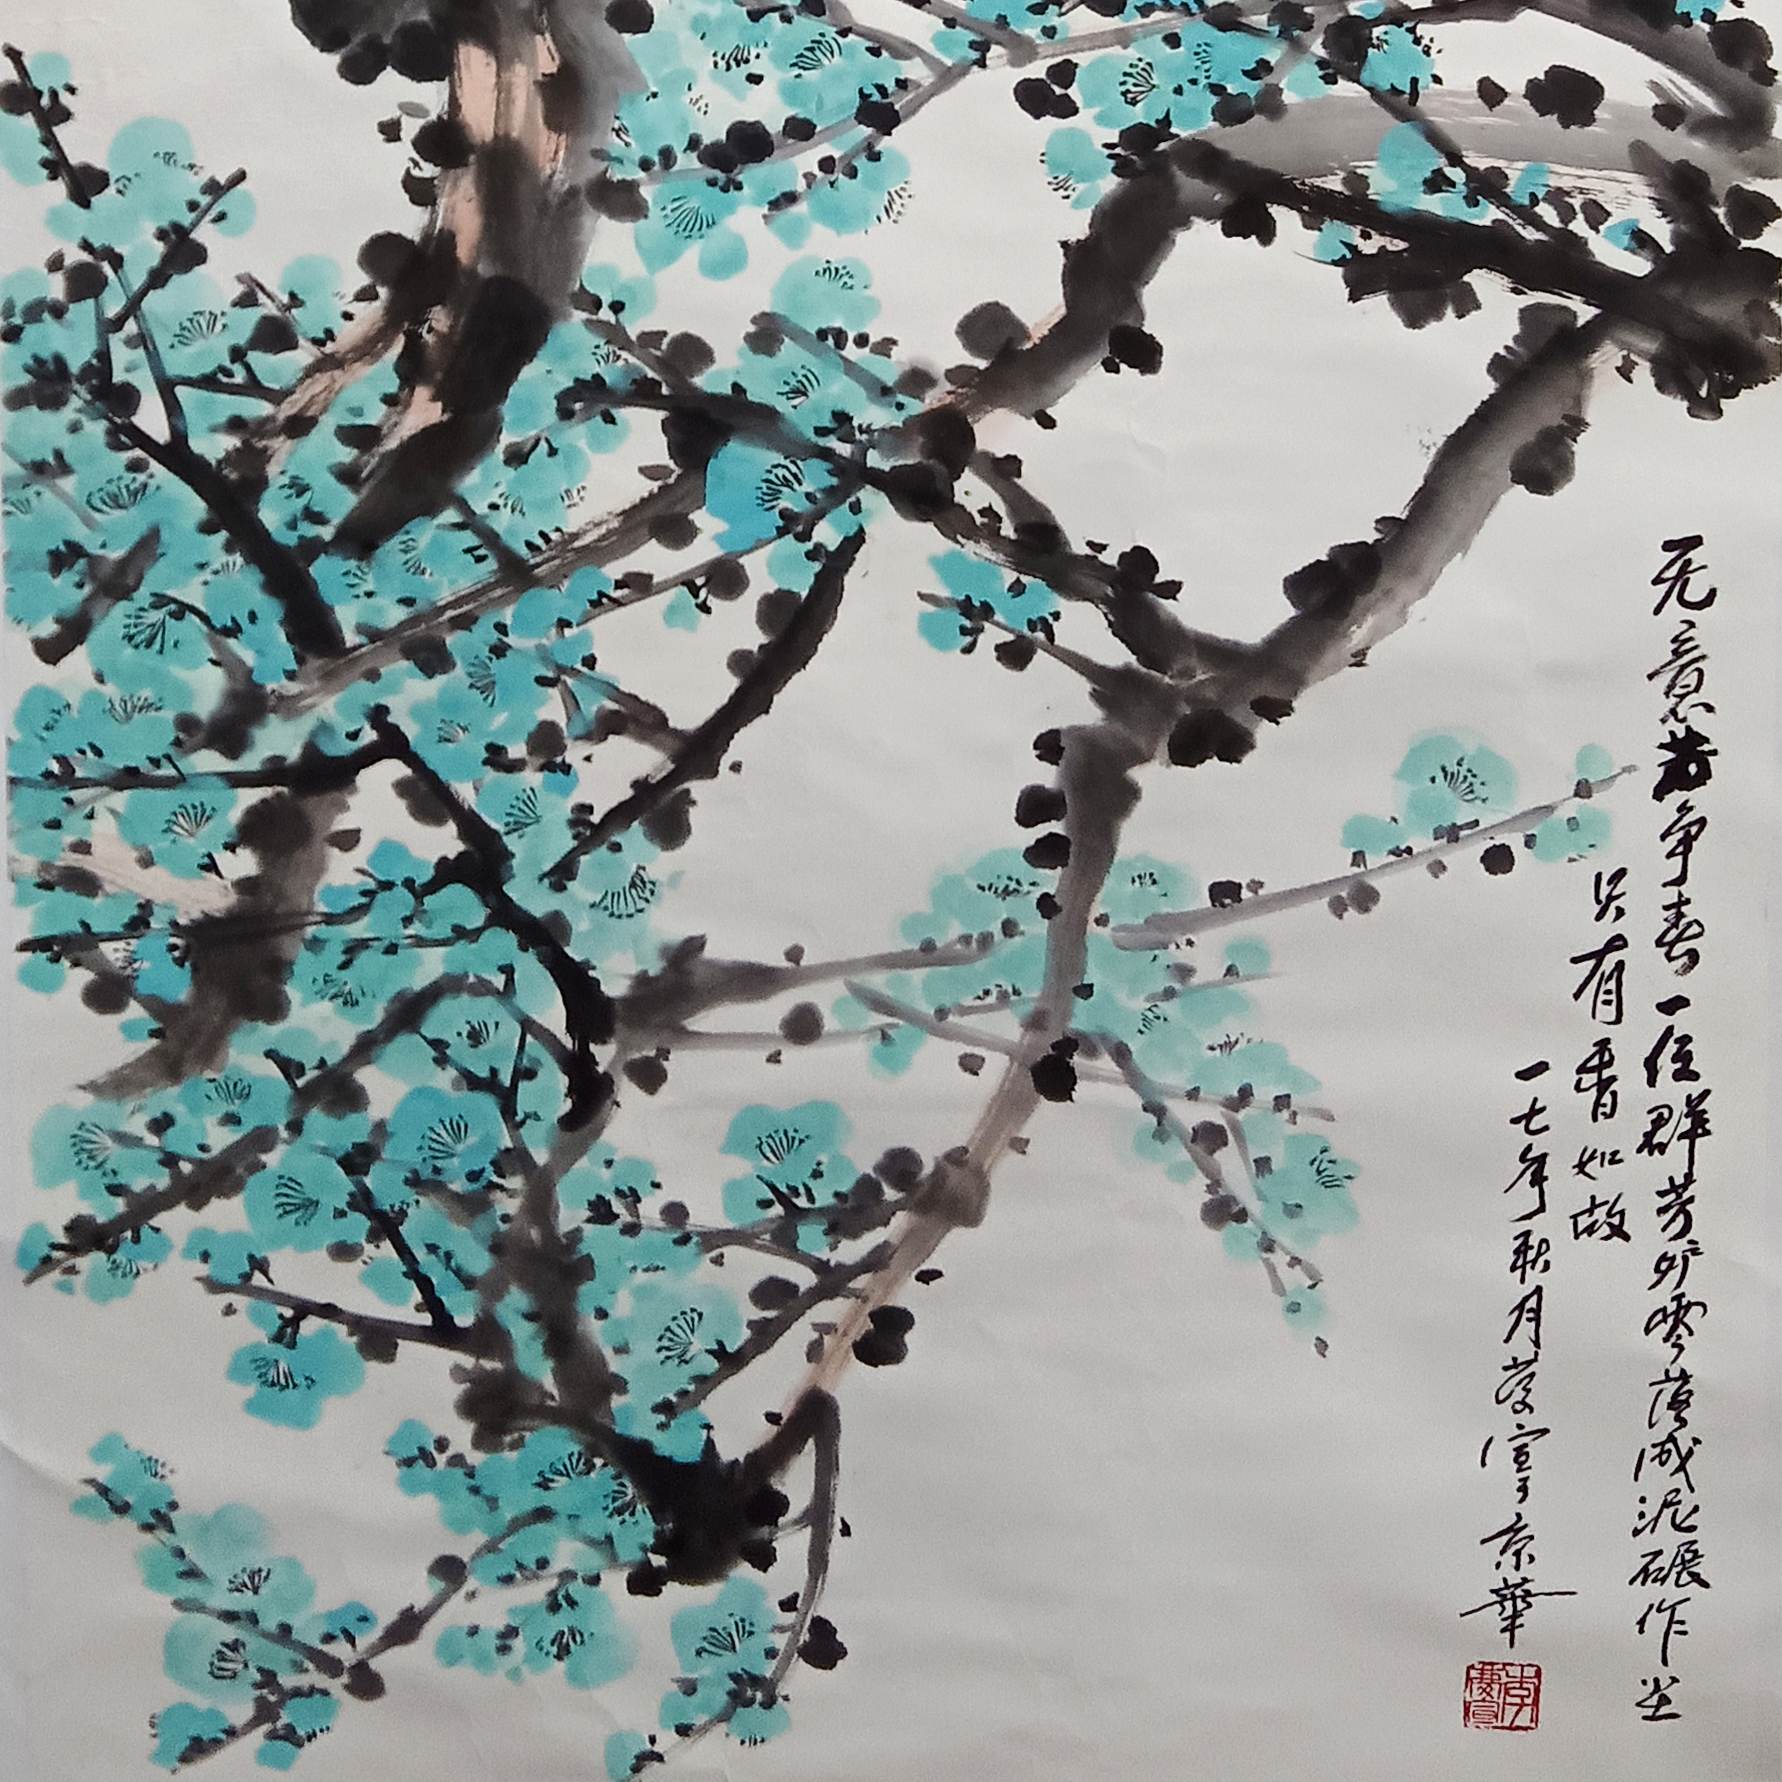 无意苦争春一任群芳妒零落成泥碾作尘
只有香如故
一七年秋月
京華